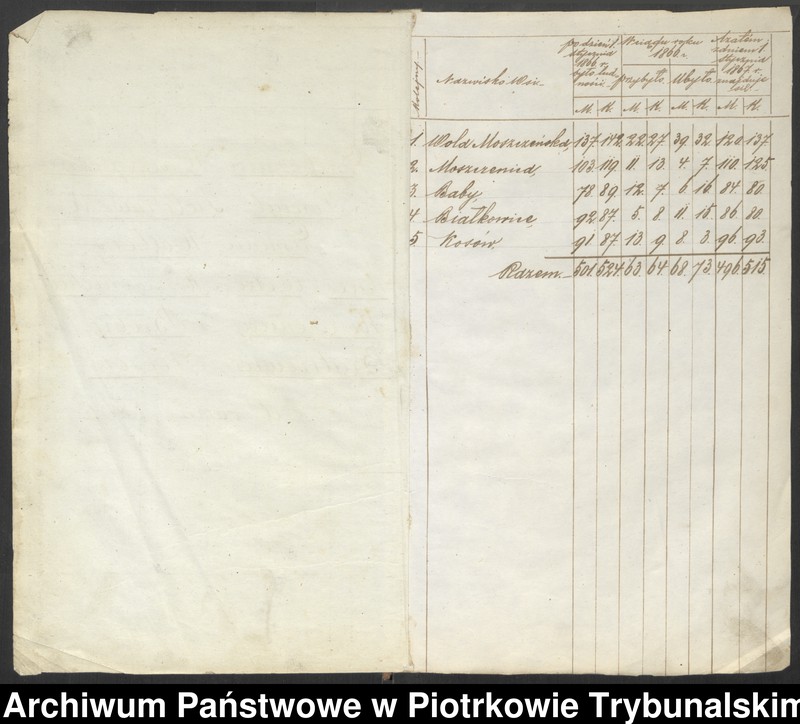 Kolejny
Nazwisko Wsi
po dzień 1 stycznia 1866 r. było ludności
W ciągu roku 1866 r.
przybyło
Ubyło
A zatem z dniem 1 stycznia 1867 r. znajduje się
M. K. M. K. M. K. M. K.
1. Wola Moszczeńska 137. 142. 22. 27. 39. 32. 120. 137.
2. Moszczenica 103. 119. 11. 13. 4. 7. 110. 125.
3. Baby 78. 89. 12. 7. 6. 16. 84. 80.
4. Białkowice 92. 87. 5. 8. 11. 15. 86. 80.
5 Kosów 91. 87. 13. 9. 8. 3. 96. 93.
Razem 501. 524. 63. 64. 68. 73. 496. 515
Archiwum Państwowe w Piotrkowie Trybunalskim